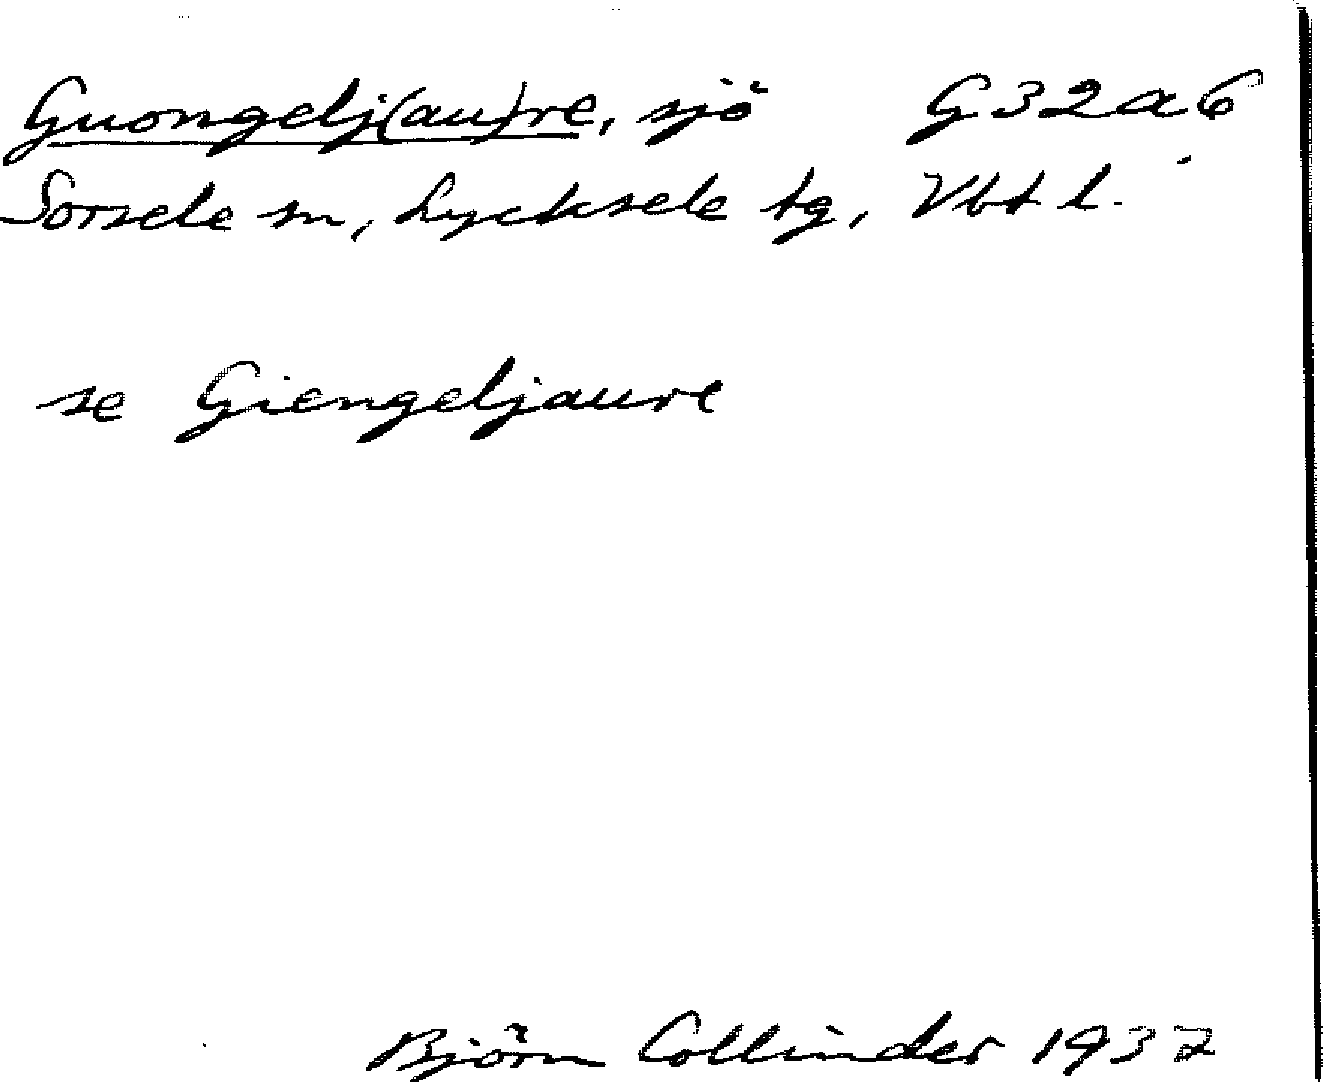 Guongelj(au)re, sjö G32a6
Sorsele sn, Lycksele tg, Vbt l.
se Giengeljaure
Björn Collinder 1932